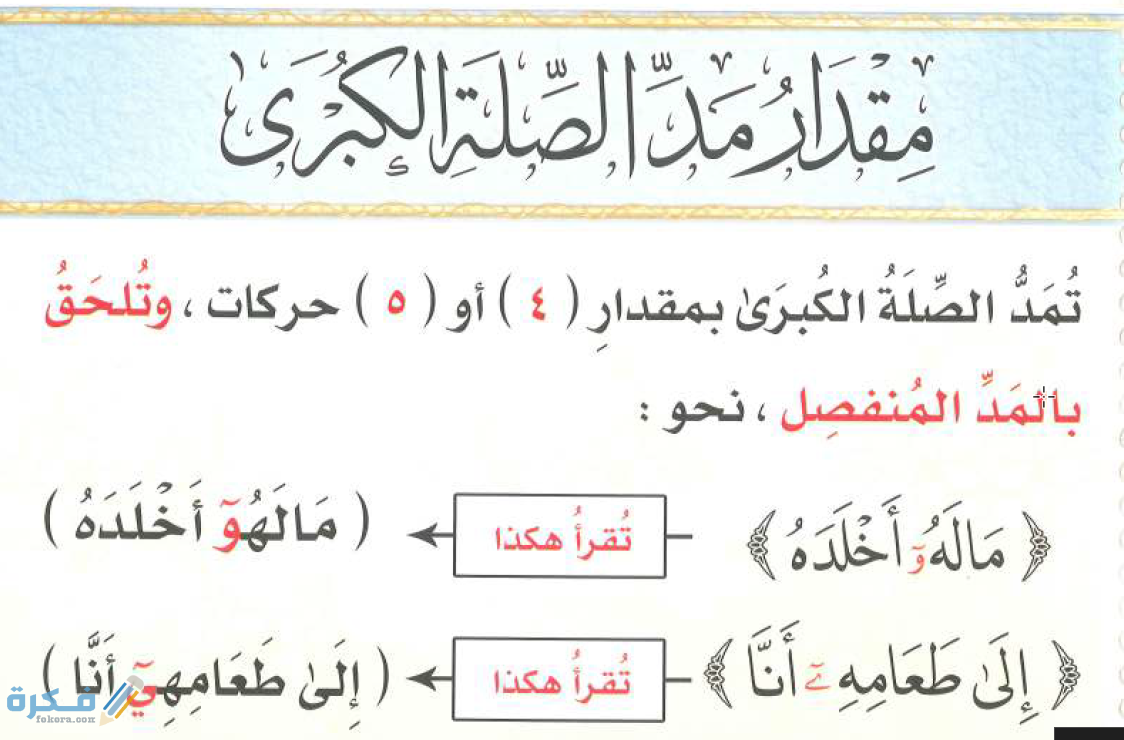 مِقْدَارُ مَدِّ الصِّلَةِ الكُبْرَى
تُمَدُّ الصِّلَةُ الكُبرَىٰ بمقدارِ ( ٤ ) أو ( ٥ ) حركات ، وتُلحَقُ
بالمَدِّ المُنفصِل ، نحو :
﴿ مَالَهُۥٓ أَخْلَدَهُ ﴾ تُقرأُ هكذا ( مَالَهُوٓ أَخْلَدَهُ )
﴿ إِلَىٰ طَعَامِهِۦٓ أَنَّا ﴾ تُقرأُ هكذا ( إِلَىٰ طَعَامِهِيٓ أَنَّا )
فكرة
fekera.com